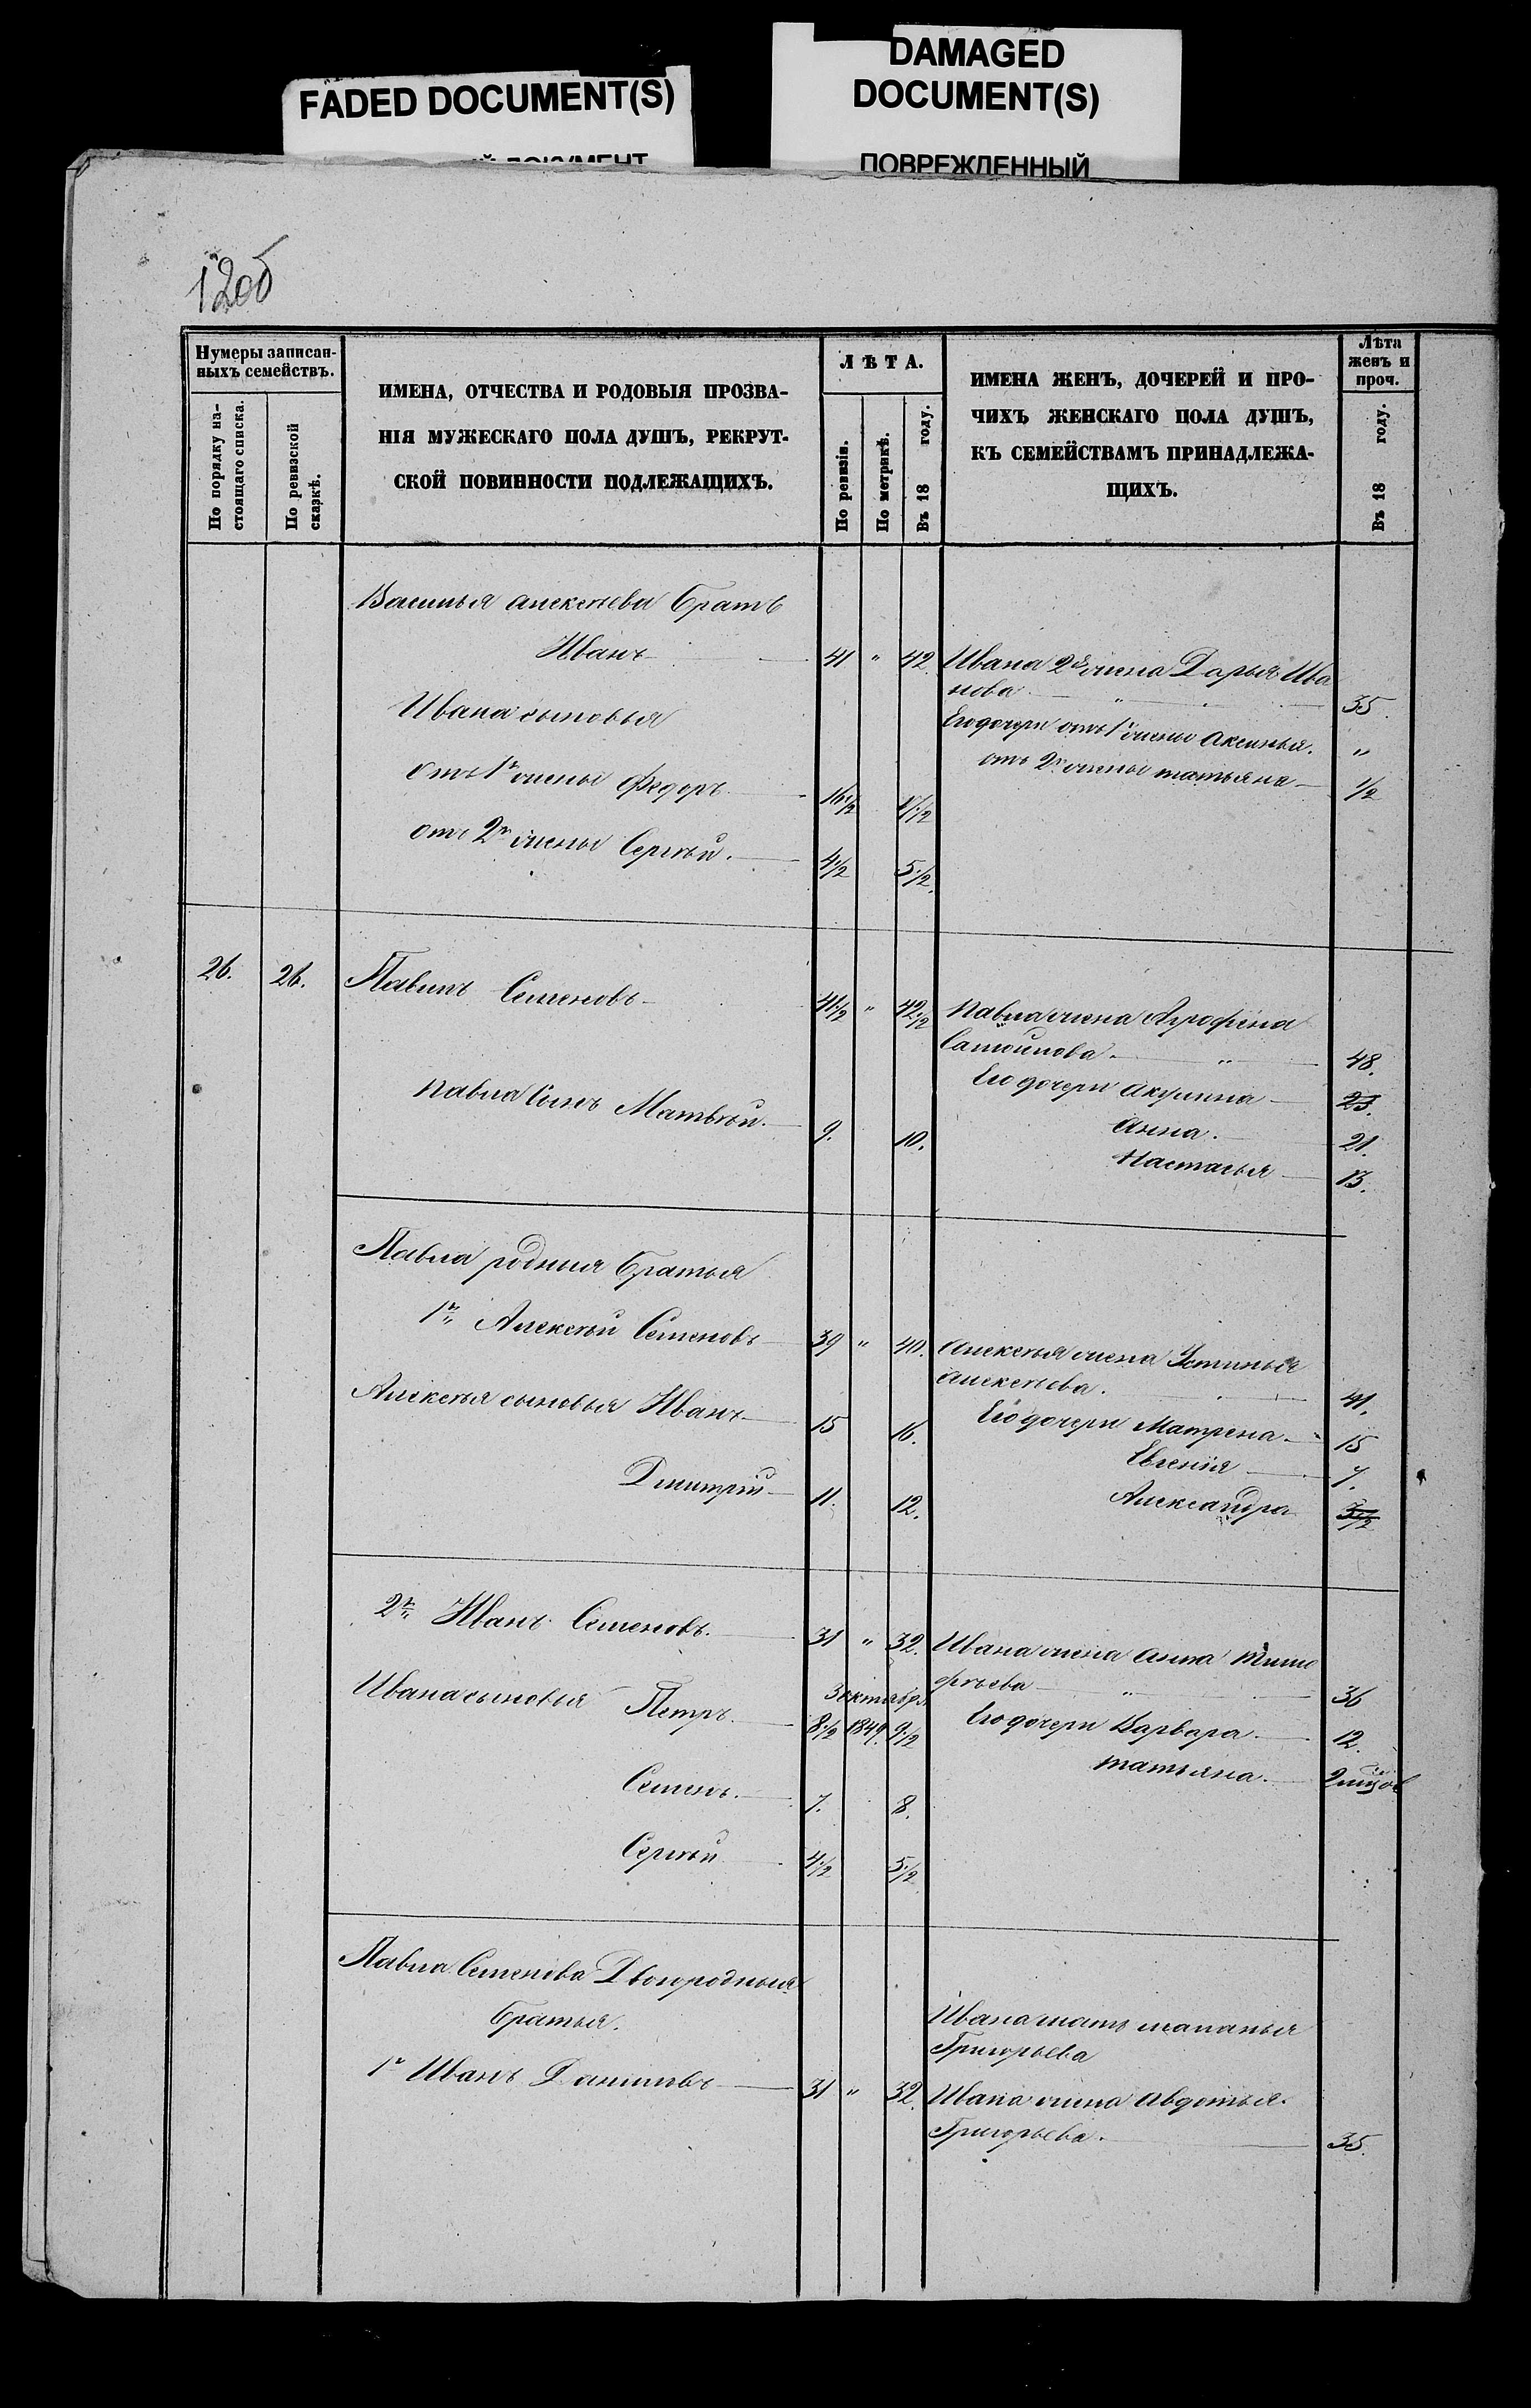 FADED DOCUMENT(S)
DAMAGED
DOCUMENT(S)
ПОВРЕЖДЕННЫЙ
12об
Нумеры записан-
ныхъ семействъ.
По порядку на-
стоящаго списка.
По ревизской
сказкѣ.
ИМЕНА, ОТЧЕСТВА И РОДОВЫЯ ПРОЗВА-
НІЯ МУЖЕСКАГО ПОЛА ДУШЪ, РЕКРУТ-
СКОЙ ПОВИННОСТИ ПОДЛЕЖАЩИХЪ.
ЛѢТА.
По ревизіи.
По метрикѣ.
Въ 18 году.
ИМЕНА ЖЕНЪ, ДОЧЕРЕЙ И ПРО-
ЧИХЪ ЖЕНСКАГО ПОЛА ДУШЪ,
КЪ СЕМЕЙСТВАМЪ ПРИНАДЛЕЖА-
ЩИХЪ.
Лѣта
женъ и
проч.
Въ 18 году.
Василья Алексѣева братъ
Иванъ 41 " 42. Ивана 2я жена Дарья Ива
нова " 35.
Ивана сыновья
Его дочери отъ 1й жены Аксинья. "
отъ 2й жены Татьяна 1/2
Отъ 1й жены Федоръ 16 1/2 17 1/2
отъ 2й жены Сергѣй. 4 1/2 5 1/2.
26. 26. Павелъ Семеновъ 41 1/2 " 42 1/2 Павла жена Агрофена
Самойлова. " 48.
Его дочери Акулина 23.
Павла сынъ Матвѣй. 9. 10. Анна. 21.
Настасья 13.
Павла родныя братья
1й Алексѣй Семеновъ 39 " 40. Алексѣя жена Устинья
Алексѣева. 41.
Алексѣя сыновья Иванъ 15 16. Его дочери Матрена 15
Евгенія 7.
Дмитрій 11. 12. Александра 3 1/2
2й Иванъ Семеновъ. 31 " 32. Ивана жена Анна Тимо
фѣева " 36
Ивана сыновья Петръ. 3 октября
8 1/2 1849. 9 1/2 Его дочери Варвара 12.
Татьяна. 2 мцов
Семенъ. 7. 8.
Сергѣй 4 1/2 5 1/2
Павла Семенова Двоюродныя
братья.
Ивана мать Маланья
Григорьева
1й Иванъ Даниловъ 31 " 32. Ивана жена Авдотья
Григорьева. 35.